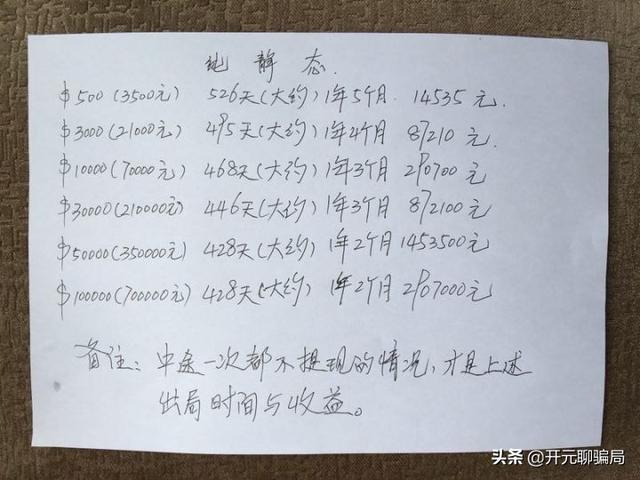 纯静态
$500(3500元) 526天(大约)1年5个月. 14535元.
$3000(21000元) 495天(大约)1年4个月 87210元.
$10000(70000元) 468天(大约)1年3个月 290700元
$30000(210000元) 446天(大约)1年3个月 872100元
$50000(350000元) 428天(大约)1年2个月 1453500元
$100000(700000元) 428天(大约)1年2个月 2907000元
备注: 中途一次都不提现的情况,才是上述
出局时间与收益。
头条 @开元聊骗局